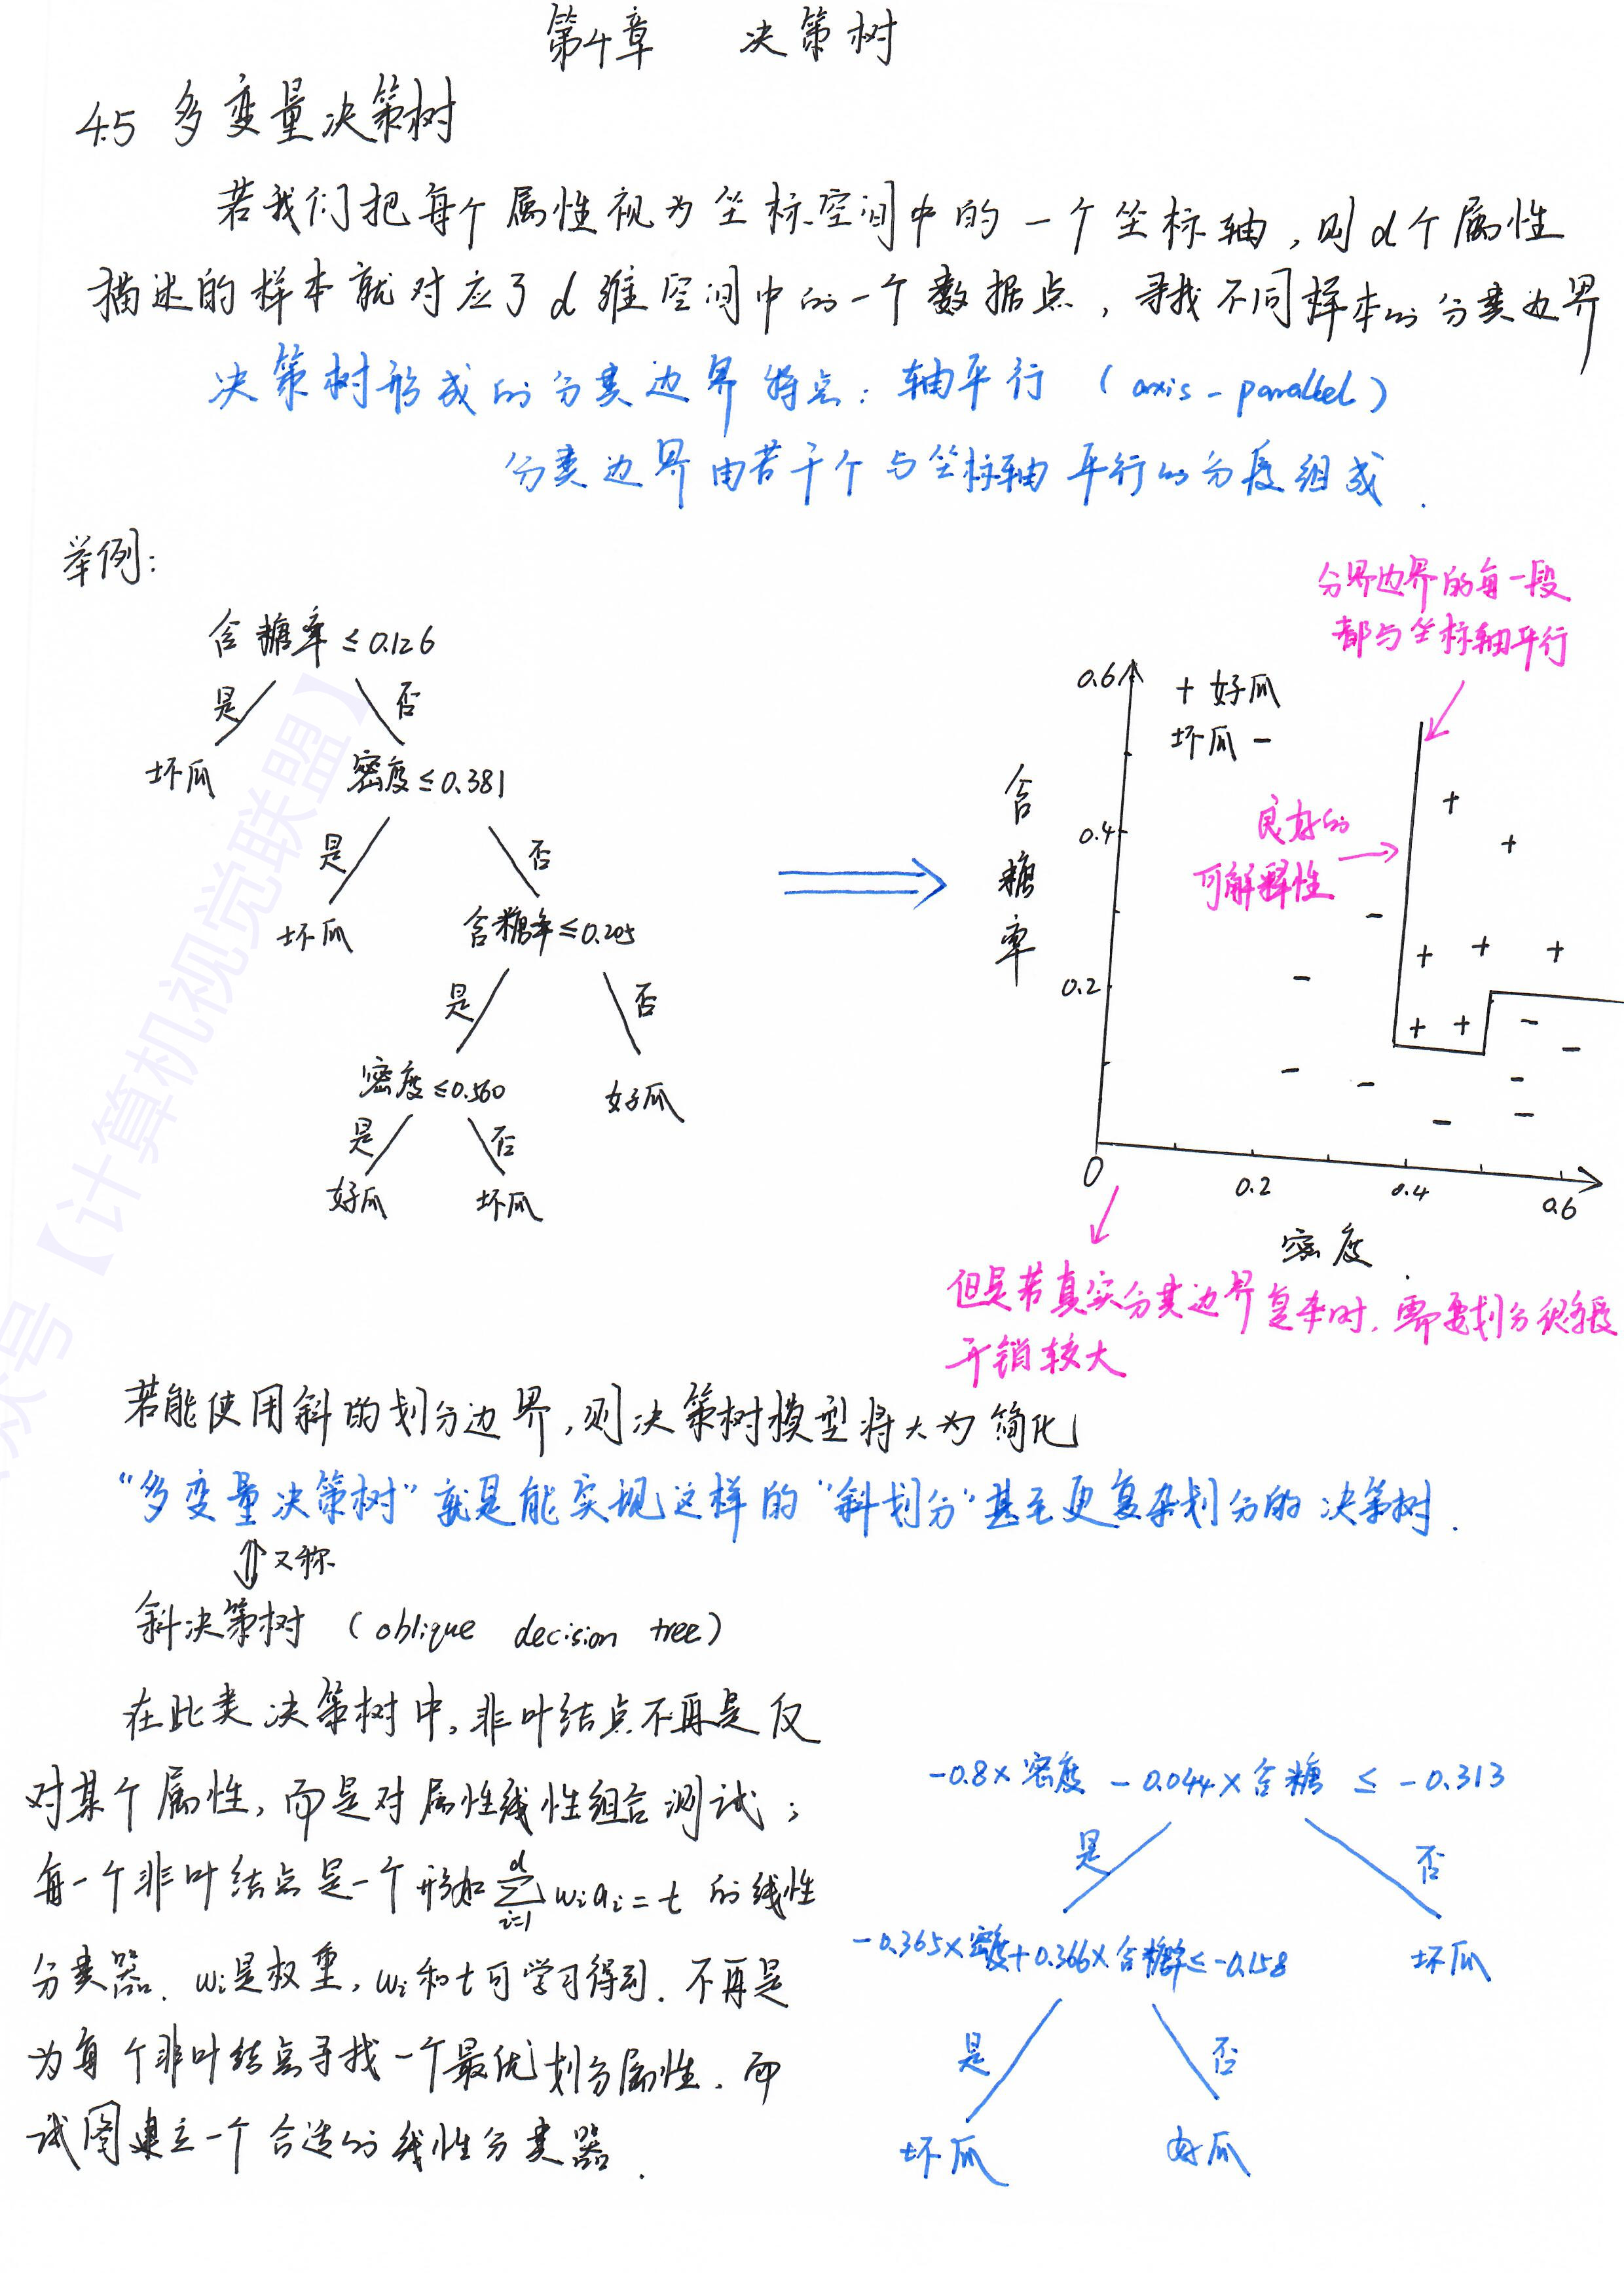 第4章 决策树
4.5 多变量决策树
若我们把每个属性视为坐标空间中的一个坐标轴,则d个属性
描述的样本就对应了d维空间中的一个数据点,寻找不同样本的分类边界
决策树形成的分类边界特点:轴平行 (axis-parallel)
分类边界由若干个与坐标轴平行的分段组成.
举例:
含糖率≤0.126
是 否
坏瓜
密度≤0.381
是 否
坏瓜
含糖率≤0.205
是 否
密度≤0.560
好瓜
是 否
好瓜 坏瓜
分界边界的每一段
都与坐标轴平行
0.6
+ 好瓜
坏瓜 -
含糖率
0.4
良好的
可解释性
0.2
0
0.2
0.4
0.6
密度.
但是若真实分类边界复杂时,需要划分很多段
开销较大
若能使用斜的划分边界,则决策树模型将大为简化
“多变量决策树”就是能实现这样的“斜划分”甚至更复杂划分的决策树.
⇕又称
斜决策树 (oblique decision tree)
在此类决策树中,非叶结点不再是仅
对某个属性,而是对属性线性组合测试;
每一个非叶结点是一个形如∑_{i=1}^{d} wiai=t 的线性
分类器.wi是权重,wi和t可学习得到.不再是
为每个非叶结点寻找一个最优划分属性.而
试图建立一个合适的线性分类器.
-0.8×密度 -0.044×含糖 ≤ -0.313
是 否
-0.365×密度+0.366×含糖率≤-0.158
坏瓜
是 否
坏瓜 好瓜
计算机视觉联盟】
众号【